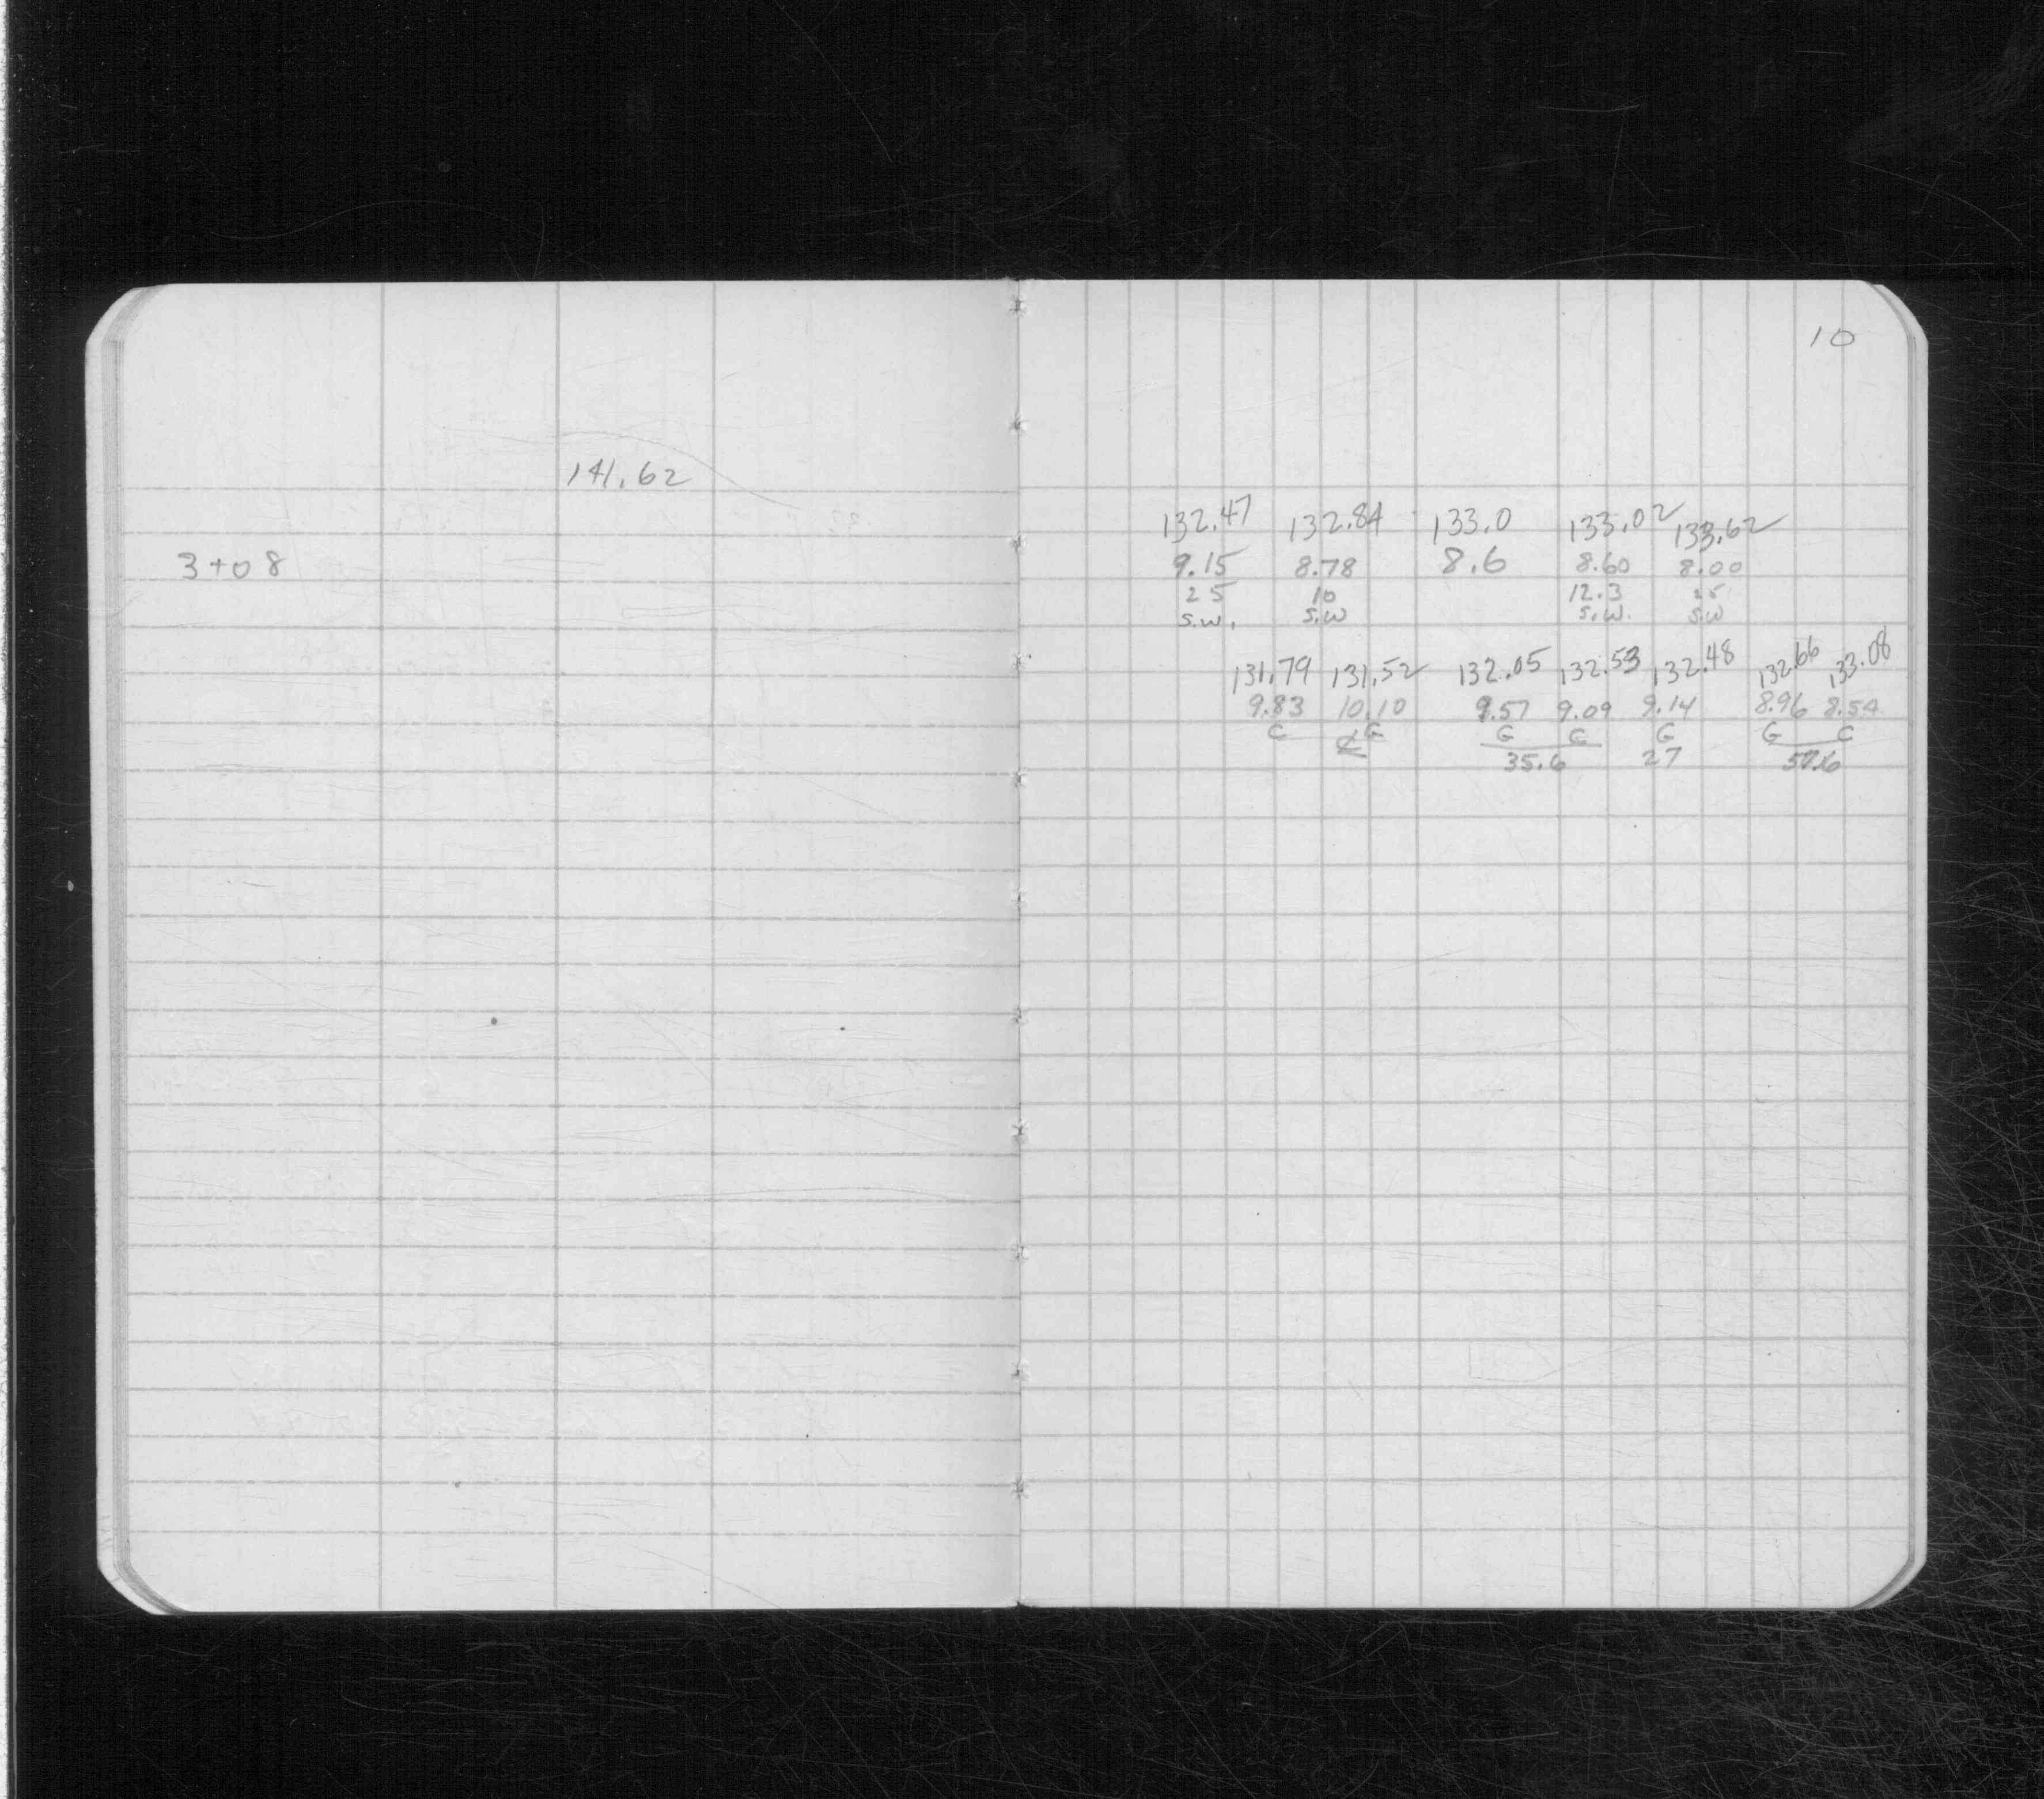 10
141.62
132.47 132.84 133.0 133.02 133.62
3+08
9.15 8.78 8.6 8.60 8.00
25 10 12.3 25
S.W. S.W S.W. S.W
131.79 131.52 132.05 132.53 132.48 132.66 133.08
9.83 10.10 9.57 9.09 9.14 8.96 8.54
C G G C G G C
℄ 35.6 27 57.6